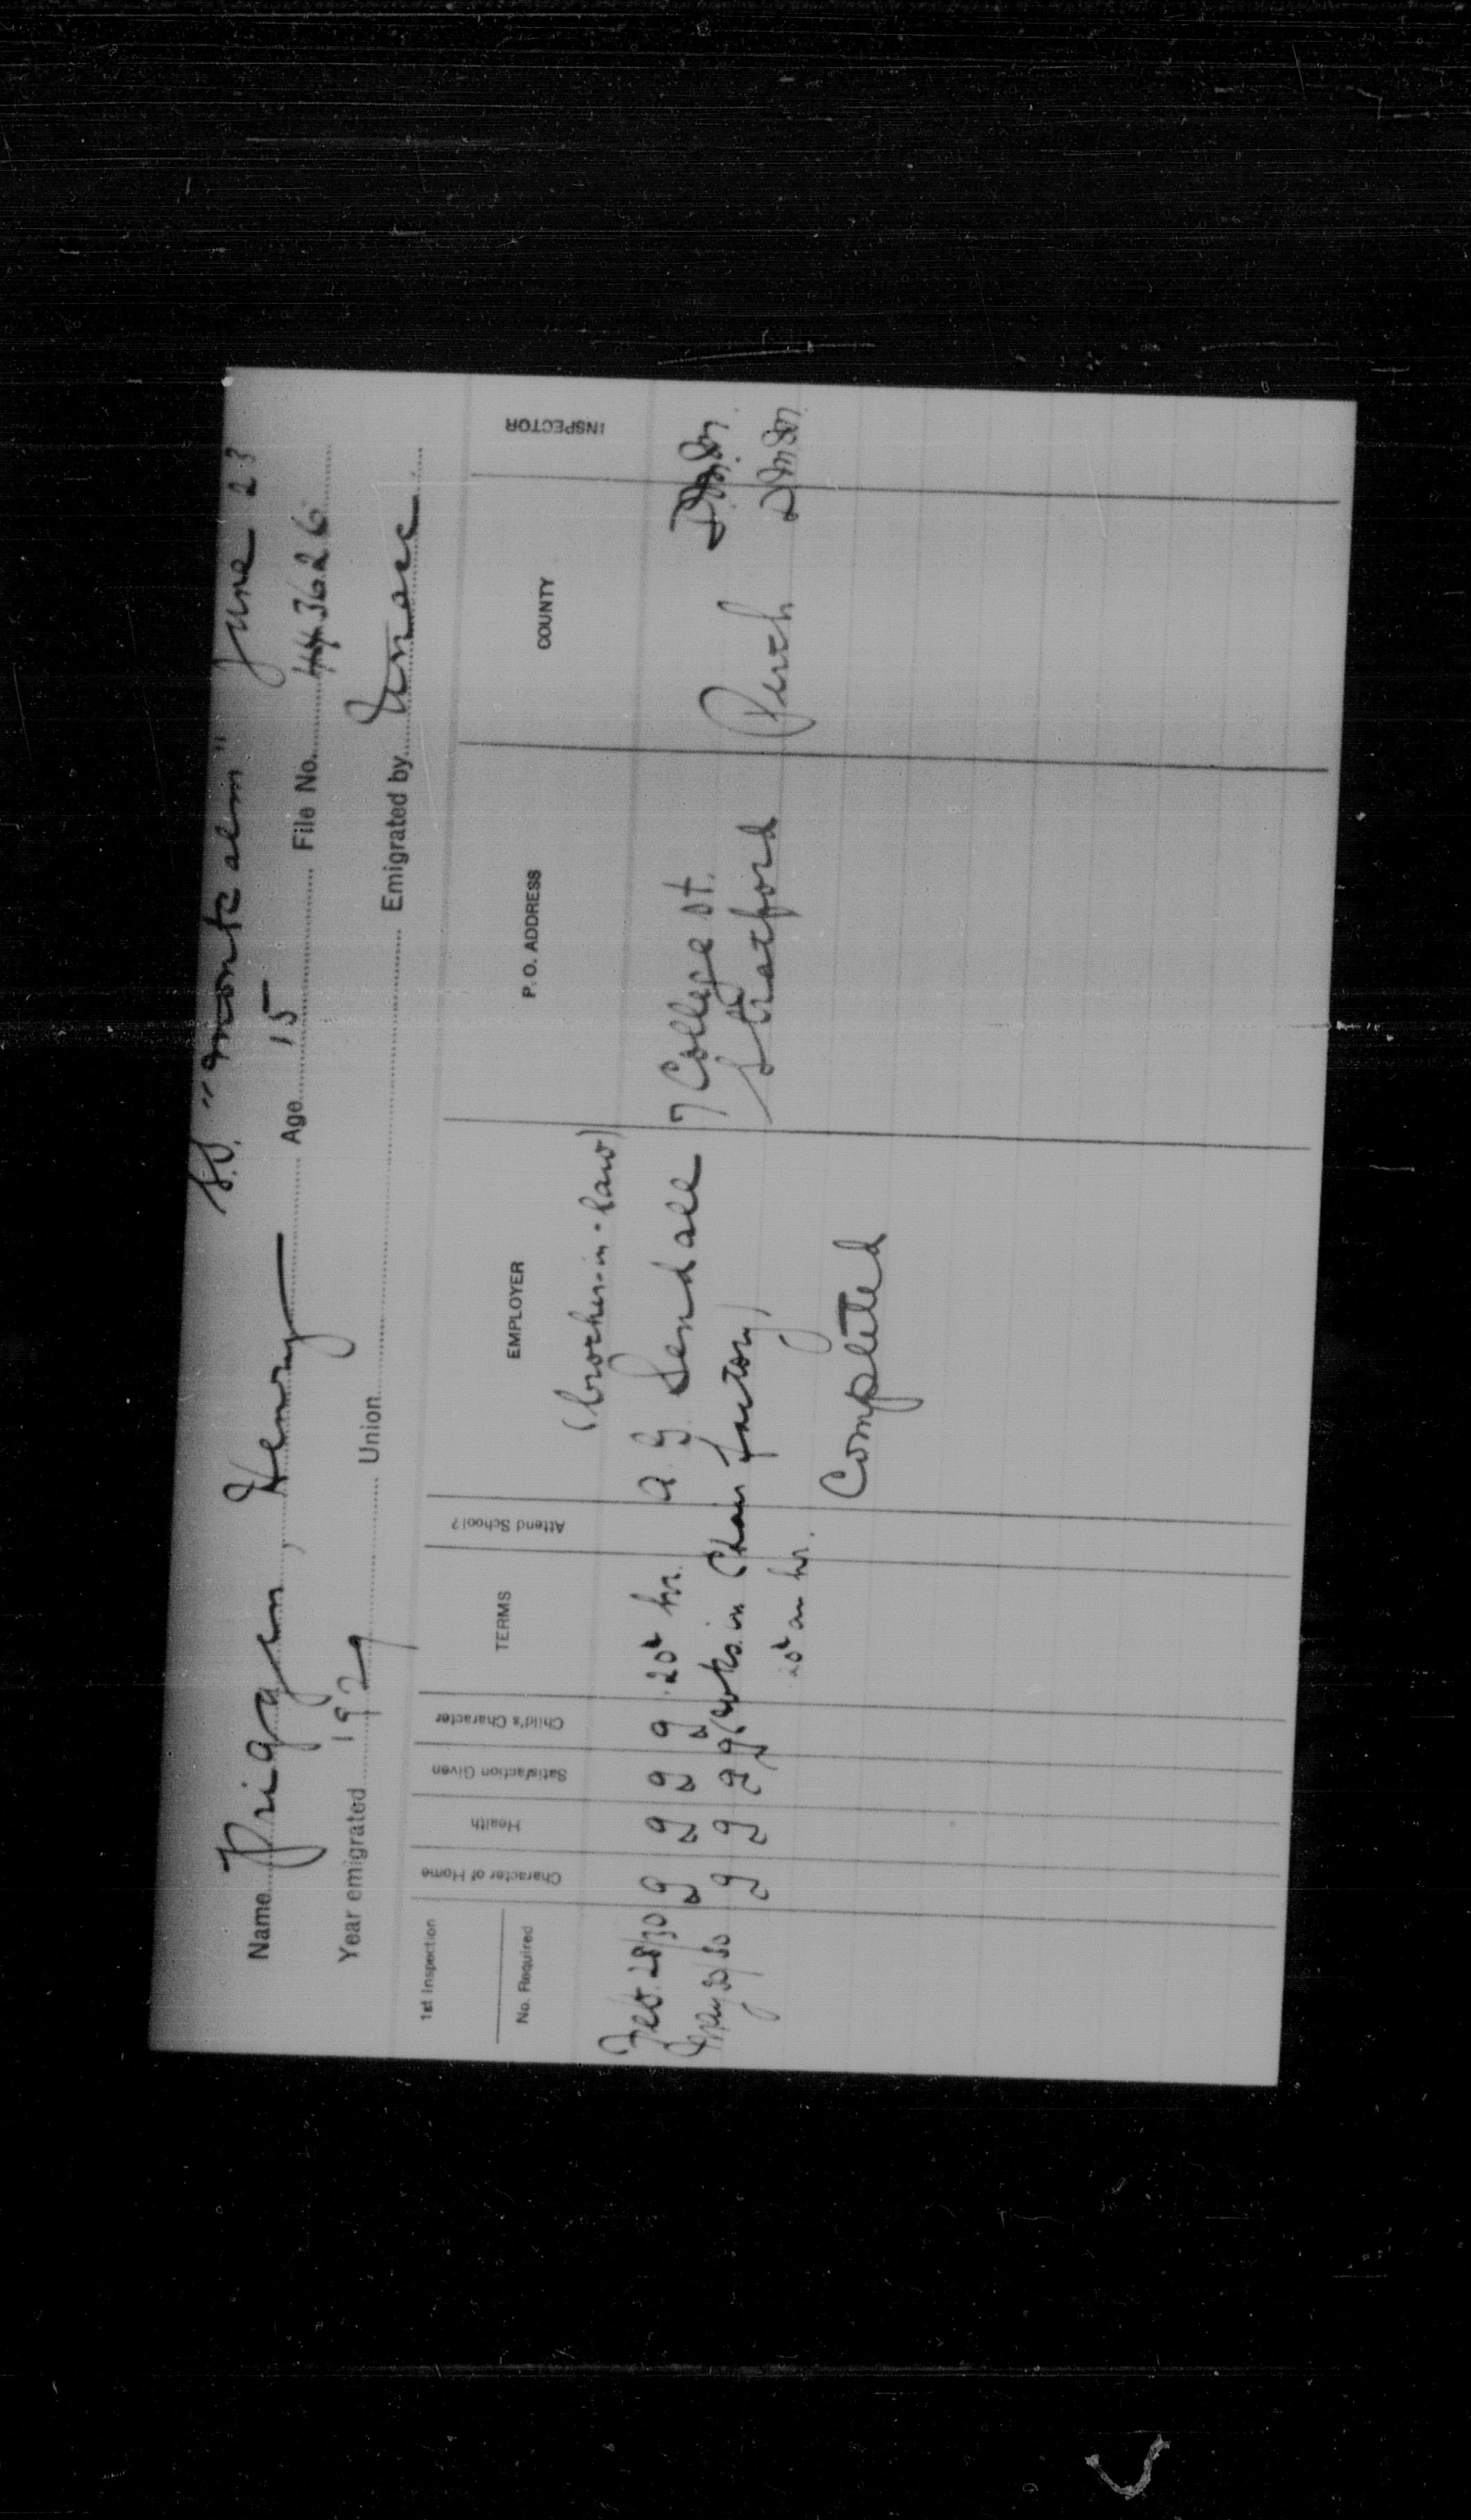 S.S. "Montcalm" June 23
Name Priggen, Henry Age 15 File No. 3626
Year emigrated 1929 Union Emigrated by Unacc
1st Inspection
No. Required Character of Home Health Satisfaction Given Child's Character TERMS Attend School? EMPLOYER P. O. ADDRESS COUNTY INSPECTOR
(brother-in-law)
Feb. 28/30 g g g g .20¢ hr. A. G. Sendall 7 College St.
May 30/30 g g g g (works in Chair factory) Stratford Perth
.20¢ an hr.
Completed